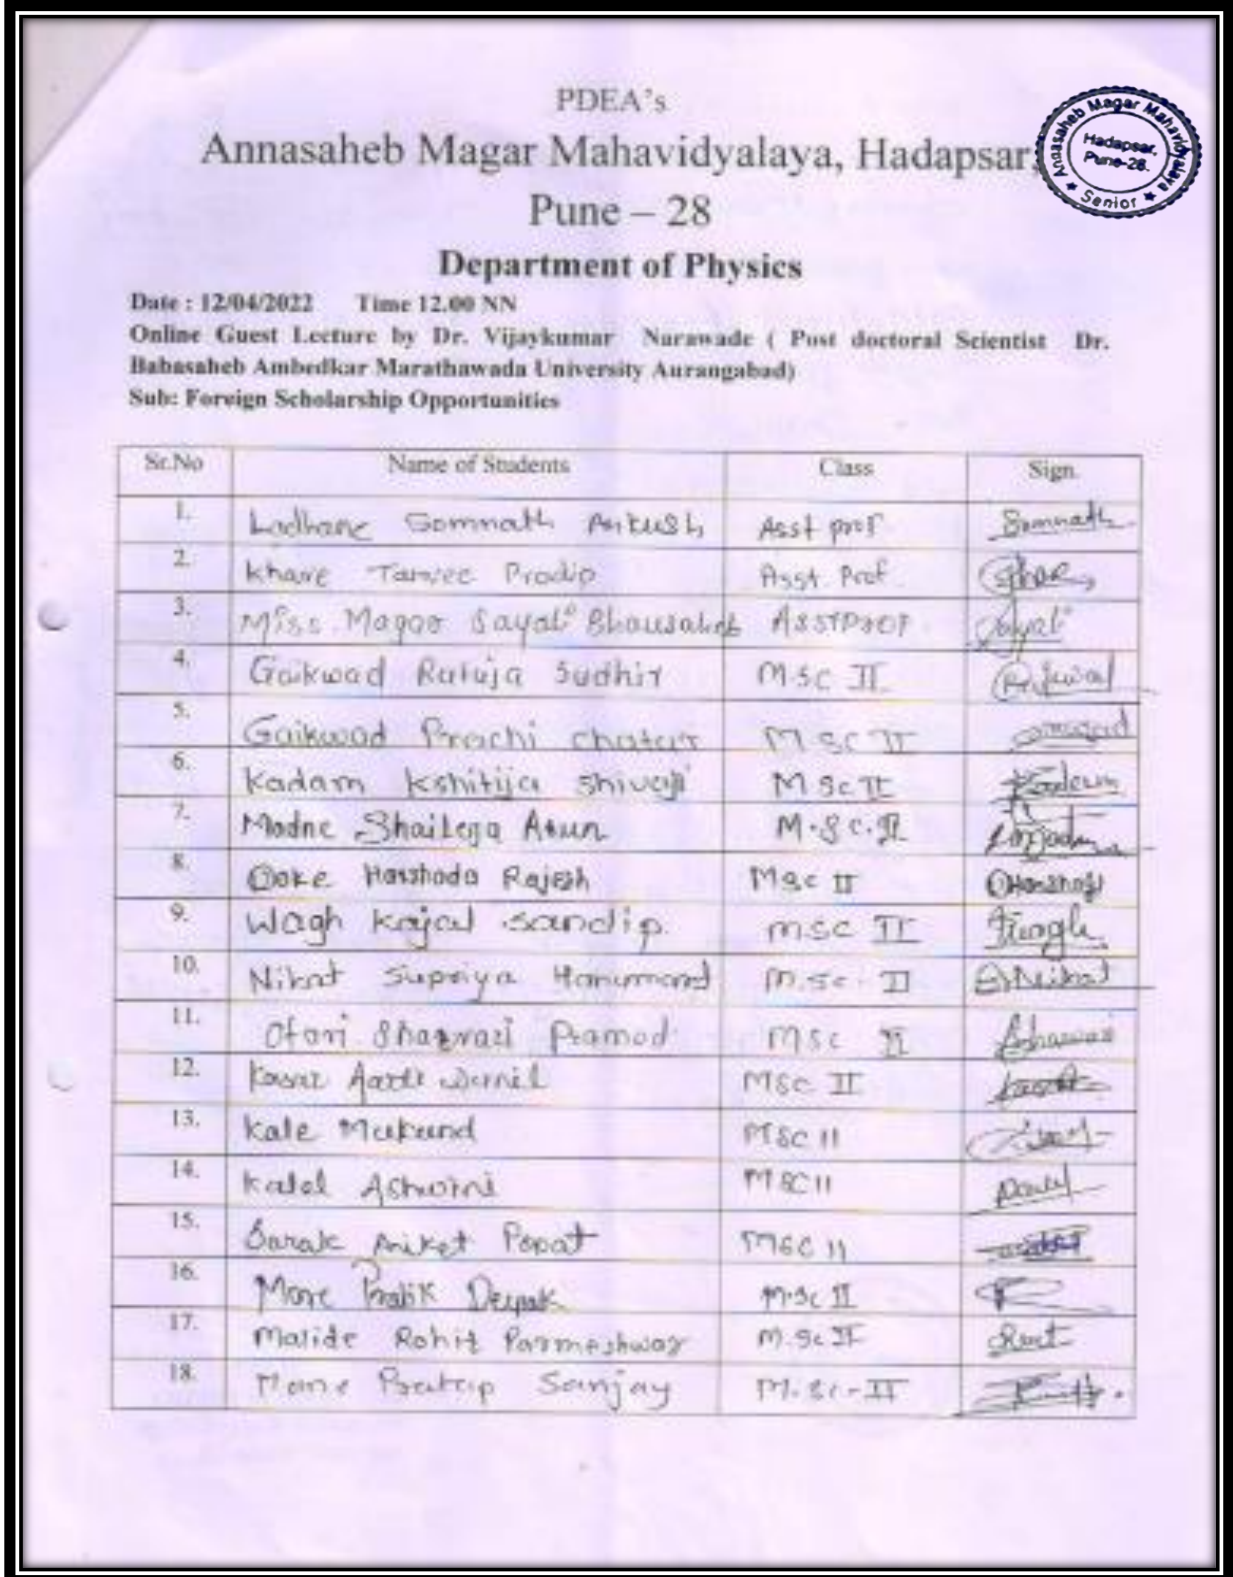 PDEA's
Annasaheb Magar Mahavidyalaya, Hadapsar,
Pune – 28
Annasaheb Magar Mahavidyalaya
Hadapsar,
Pune-28.
★ Senior ★
Department of Physics
Date : 12/04/2022 Time 12.00 NN
Online Guest Lecture by Dr. Vijaykumar Narawade ( Post doctoral Scientist Dr.
Babasaheb Ambedkar Marathawada University Aurangabad)
Sub: Foreign Scholarship Opportunities
Sr.No Name of Students Class Sign.
1. Ladhane Somnath Ankush Asst prof Somnath
2. Khare Pradip Asst Prof
3. Miss. Magar Sayali Bhausaheb Asst Prof Sayali
4. Gaikwad Rutuja Sudhir M.SC II
5. Gaikwad Prachi M SC II
6. Kadam Kshitija Shivaji M Sc II Kadam
7. Madne Arun M.Sc.II
8. Doke Harshada Rajesh MSc II
9. Wagh Kajal Sandip. MSC II
10. Nikat Supriya M.Sc. II Nikat
11. Otari Sharvari Pramod MSc II
12. Kasar Aarti MSC II
13. Kale Mukund MSC II
14. Kalel Ashwini MSC II
15. Barak Aniket Popat MSC II
16. More Pratik Deepak M.Sc II
17. Malide Rohit Parmeshwar M.Sc II
18. Mane Pratap Sanjay M.Sc-II